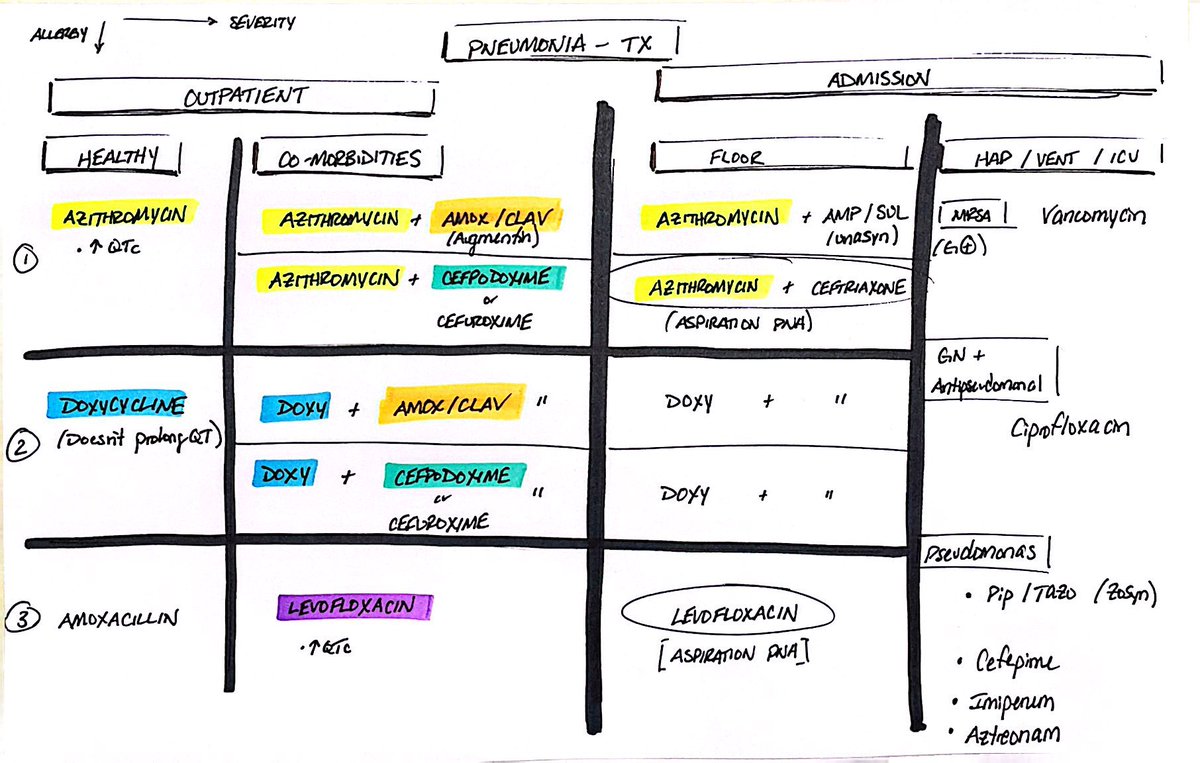 ALLERGY ↓ → SEVERITY
PNEUMONIA - TX
OUTPATIENT
ADMISSION
HEALTHY
CO-MORBIDITIES
FLOOR
HAP / VENT / ICU
①
AZITHROMYCIN
• ↑ QTC
AZITHROMYCIN + AMOX/CLAV
(Augmentin)
AZITHROMYCIN + CEFPODOXIME
or
CEFUROXIME
AZITHROMYCIN + AMP/SUL
/unasyn)
AZITHROMYCIN + CEFTRIAXONE
(ASPIRATION PNA)
MRSA Vancomycin
(G⊕)
②
DOXYCYCLINE
(Doesn't prolong QT)
DOXY + AMOX/CLAV "
DOXY + CEFPODOXIME "
or
CEFUROXIME
DOXY + "
DOXY + "
GN +
Antipseudomonal
Ciprofloxacin
③ AMOXACILLIN
LEVOFLOXACIN
• ↑ QTC
LEVOFLOXACIN
[ASPIRATION PNA]
Pseudomonas
• Pip/Tazo (Zosyn)
• Cefepime
• Imipenum
• Aztreonam